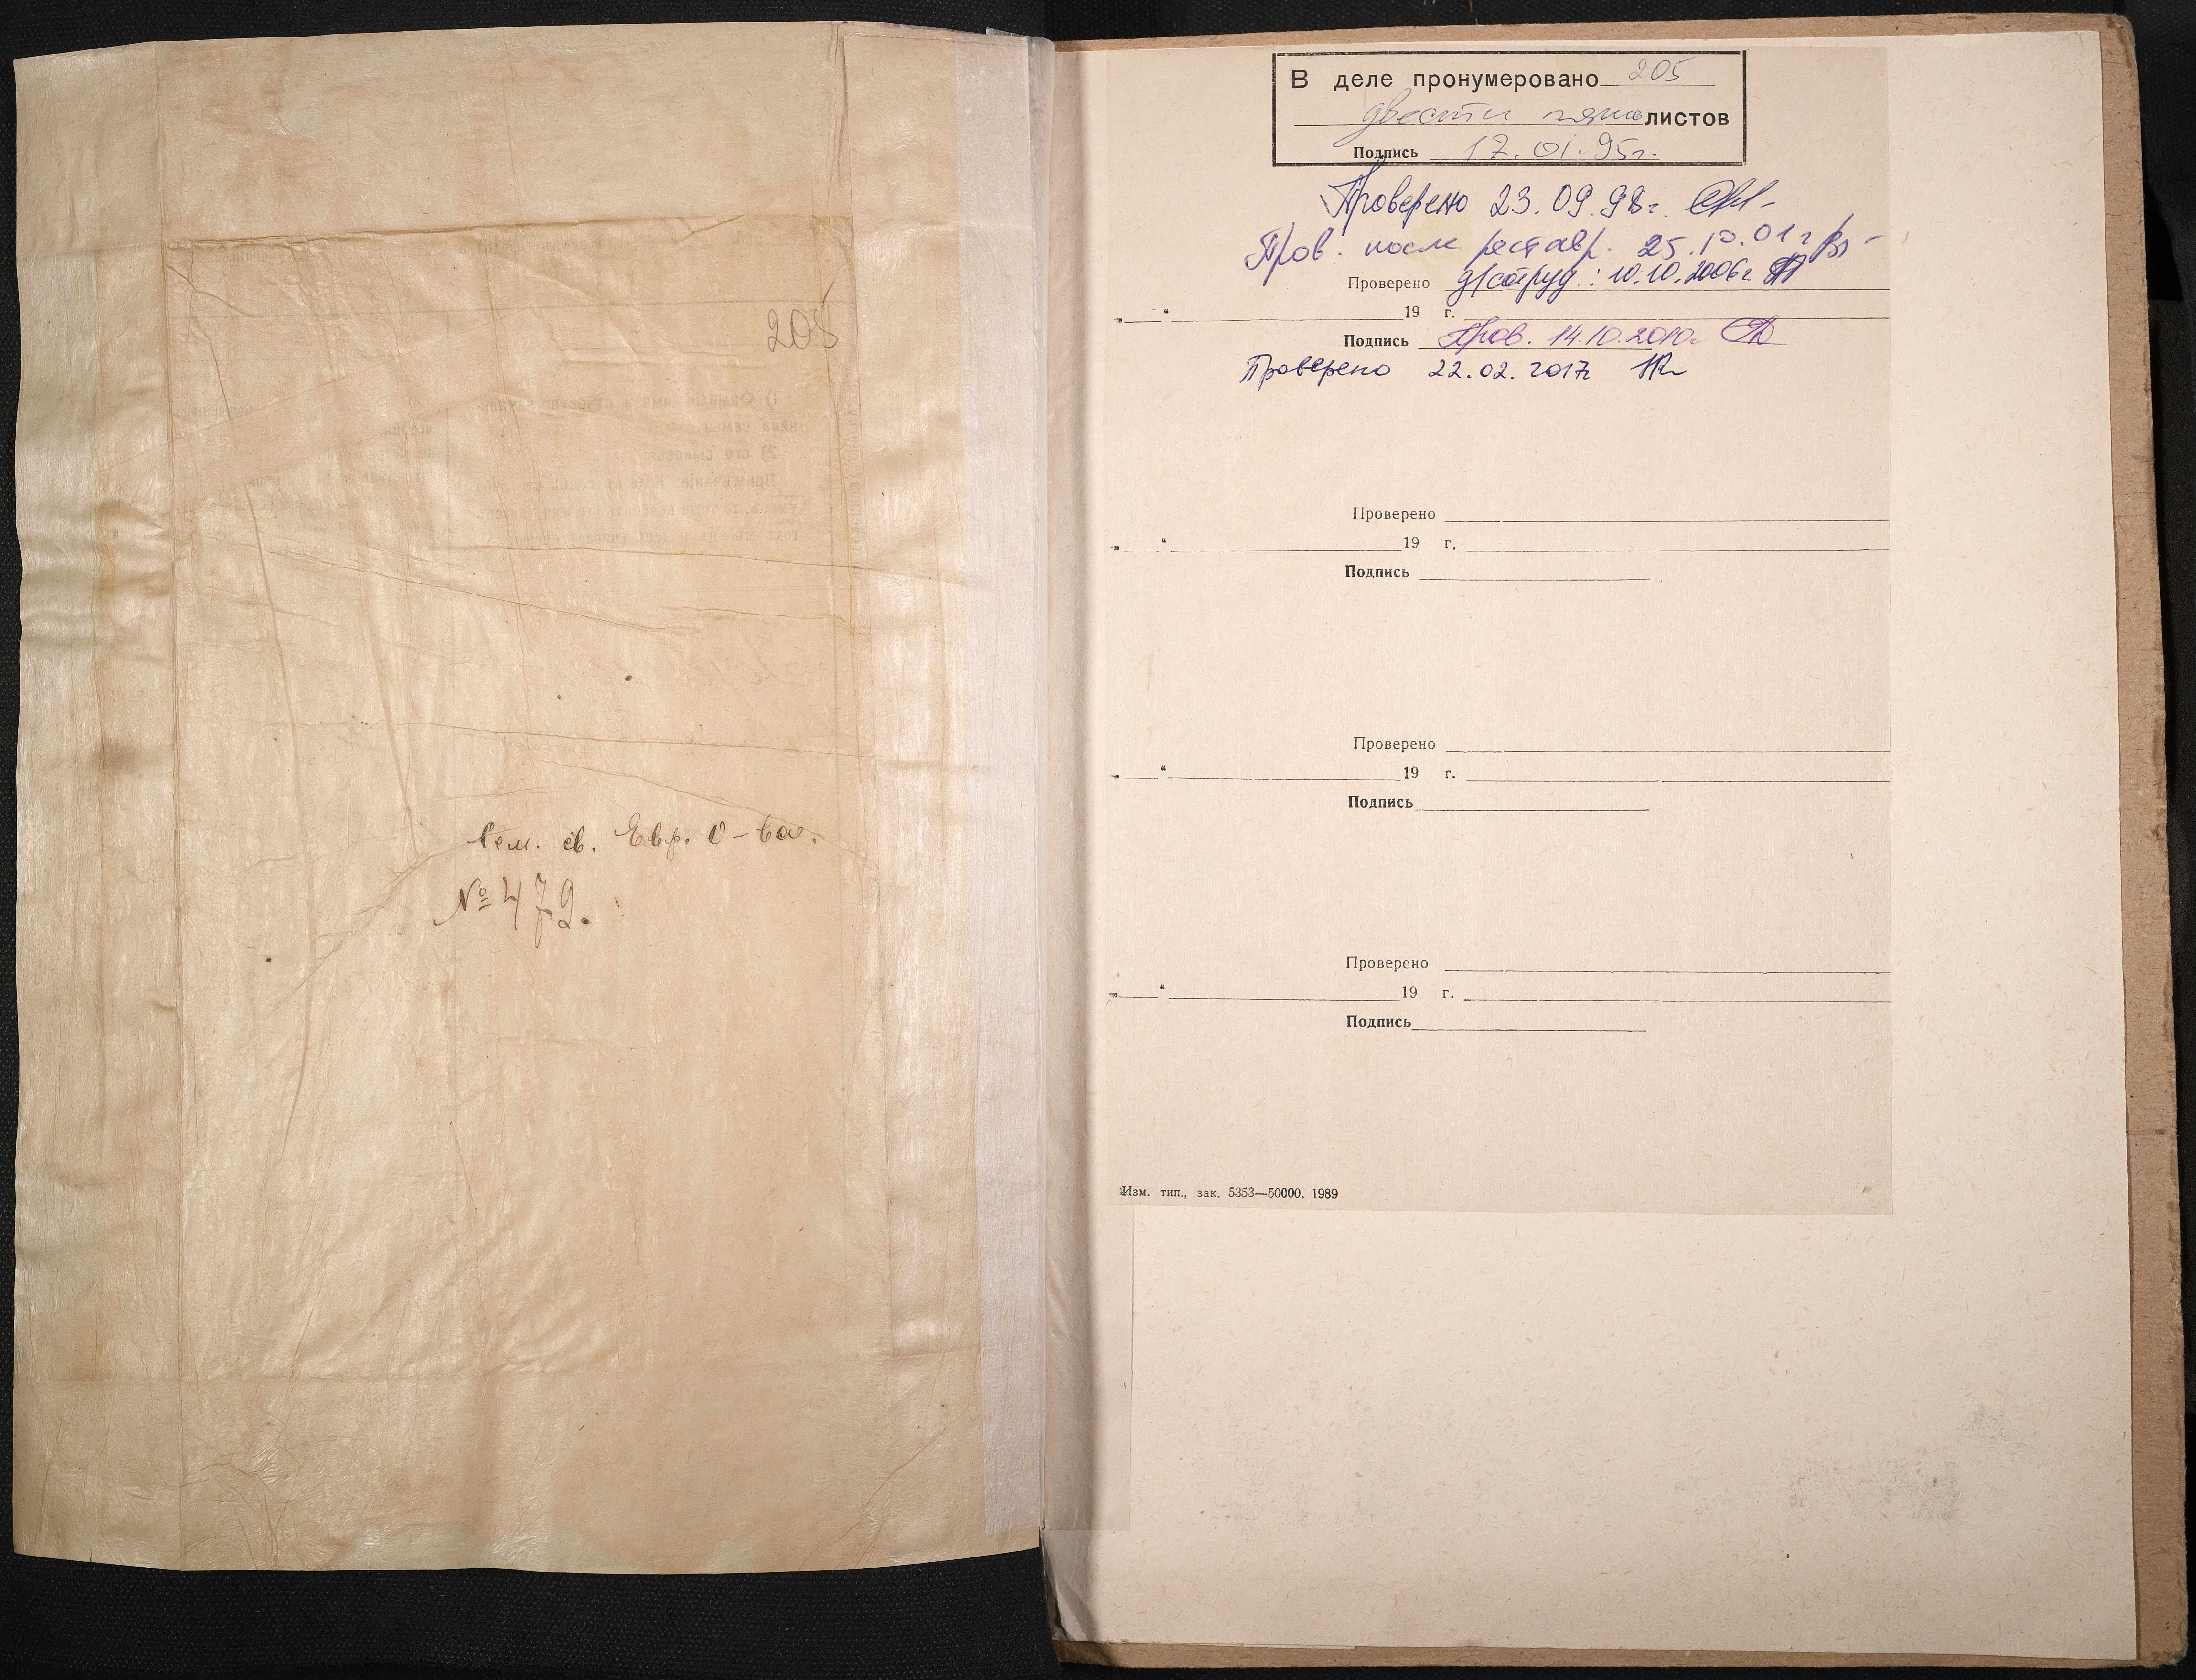 205
Сем. св. Евр. О-ва.
№ 479.
В деле пронумеровано 205
двести пять листов
Подпись 17.01.95г.
Проверено 23.09.98г.
Пров. после реставр. 25.10.01г
Проверено д/сотруд.: 10.10.2006г.
„ “ 19 г.
Подпись Пров. 14.10.2010г.
Проверено 22.02.2017г
Проверено
„ “ 19 г.
Подпись
Проверено
„ “ 19 г.
Подпись
Проверено
„ “ 19 г.
Подпись
Изм. тип., зак. 5353—50000. 1989